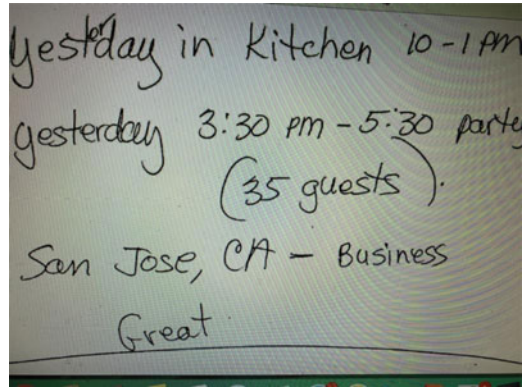 yesterday in kitchen 10-1 PM
yesterday 3:30 pm - 5:30 party
(35 guests).
San Jose, CA - Business
Great